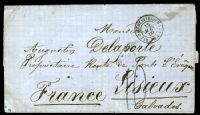 Monsieur
Augustin Delaporte
Propriétaire Route de Pont l'Evêque
France Lisieux
Calvados